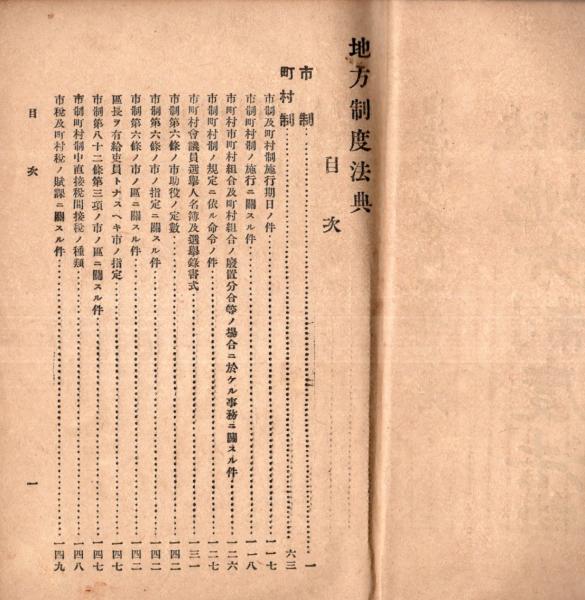 地方制度法典
目次
市制 一
町村制 六三
市制及町村制施行期日ノ件 一一七
市制町村制ノ施行ニ關スル件 一一八
市町村市町村組合及町村組合ノ廢置分合等ノ場合ニ於ケル事務ニ關スル件 一二六
市制町村制ノ規定ニ依ル命令ノ件 一二七
市町村會議員選擧人名簿及選擧錄書式 一三一
市制第六條ノ市助役ノ定數 一四二
市制第六條ノ市ノ指定ニ關スル件 一四二
市制第六條ノ市ノ區ニ關スル件 一四二
區長ヲ有給吏員トナスヘキ市ノ指定 一四七
市制第八十二條第三項ノ市ノ區ニ關スル件 一四七
市制町村制中直接稅間接稅ノ種類 一四八
市稅及町村稅ノ賦課ニ關スル件 一四九
目次
一